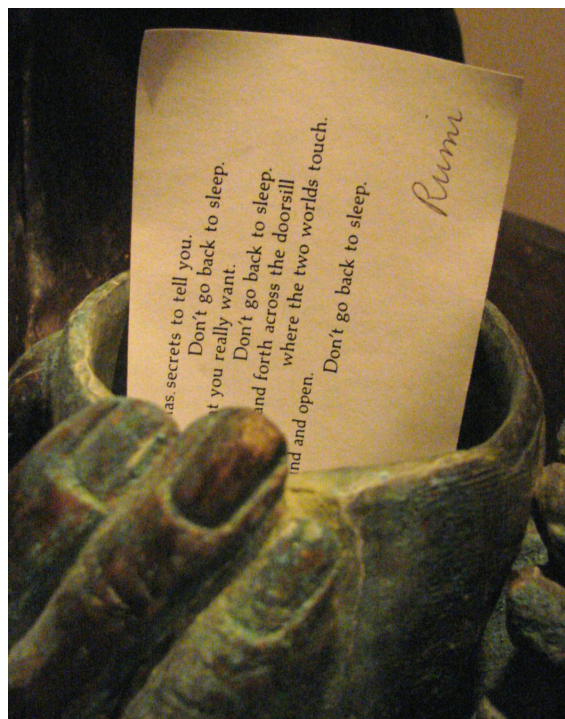 has secrets to tell you.
Don't go back to sleep.
t you really want.
Don't go back to sleep.
and forth across the doorsill
where the two worlds touch.
nd and open.
Don't go back to sleep.
Rumi